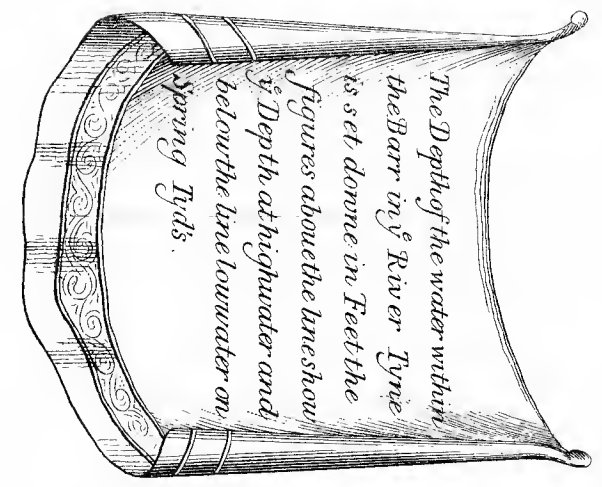 The Depth of the water within
the Barr in yᵉ River Tyne
is set downe in Feet the
figures aboue the line show
yᵉ Depth at highwater and
belowthe line lowwater on
Spring Tyds.